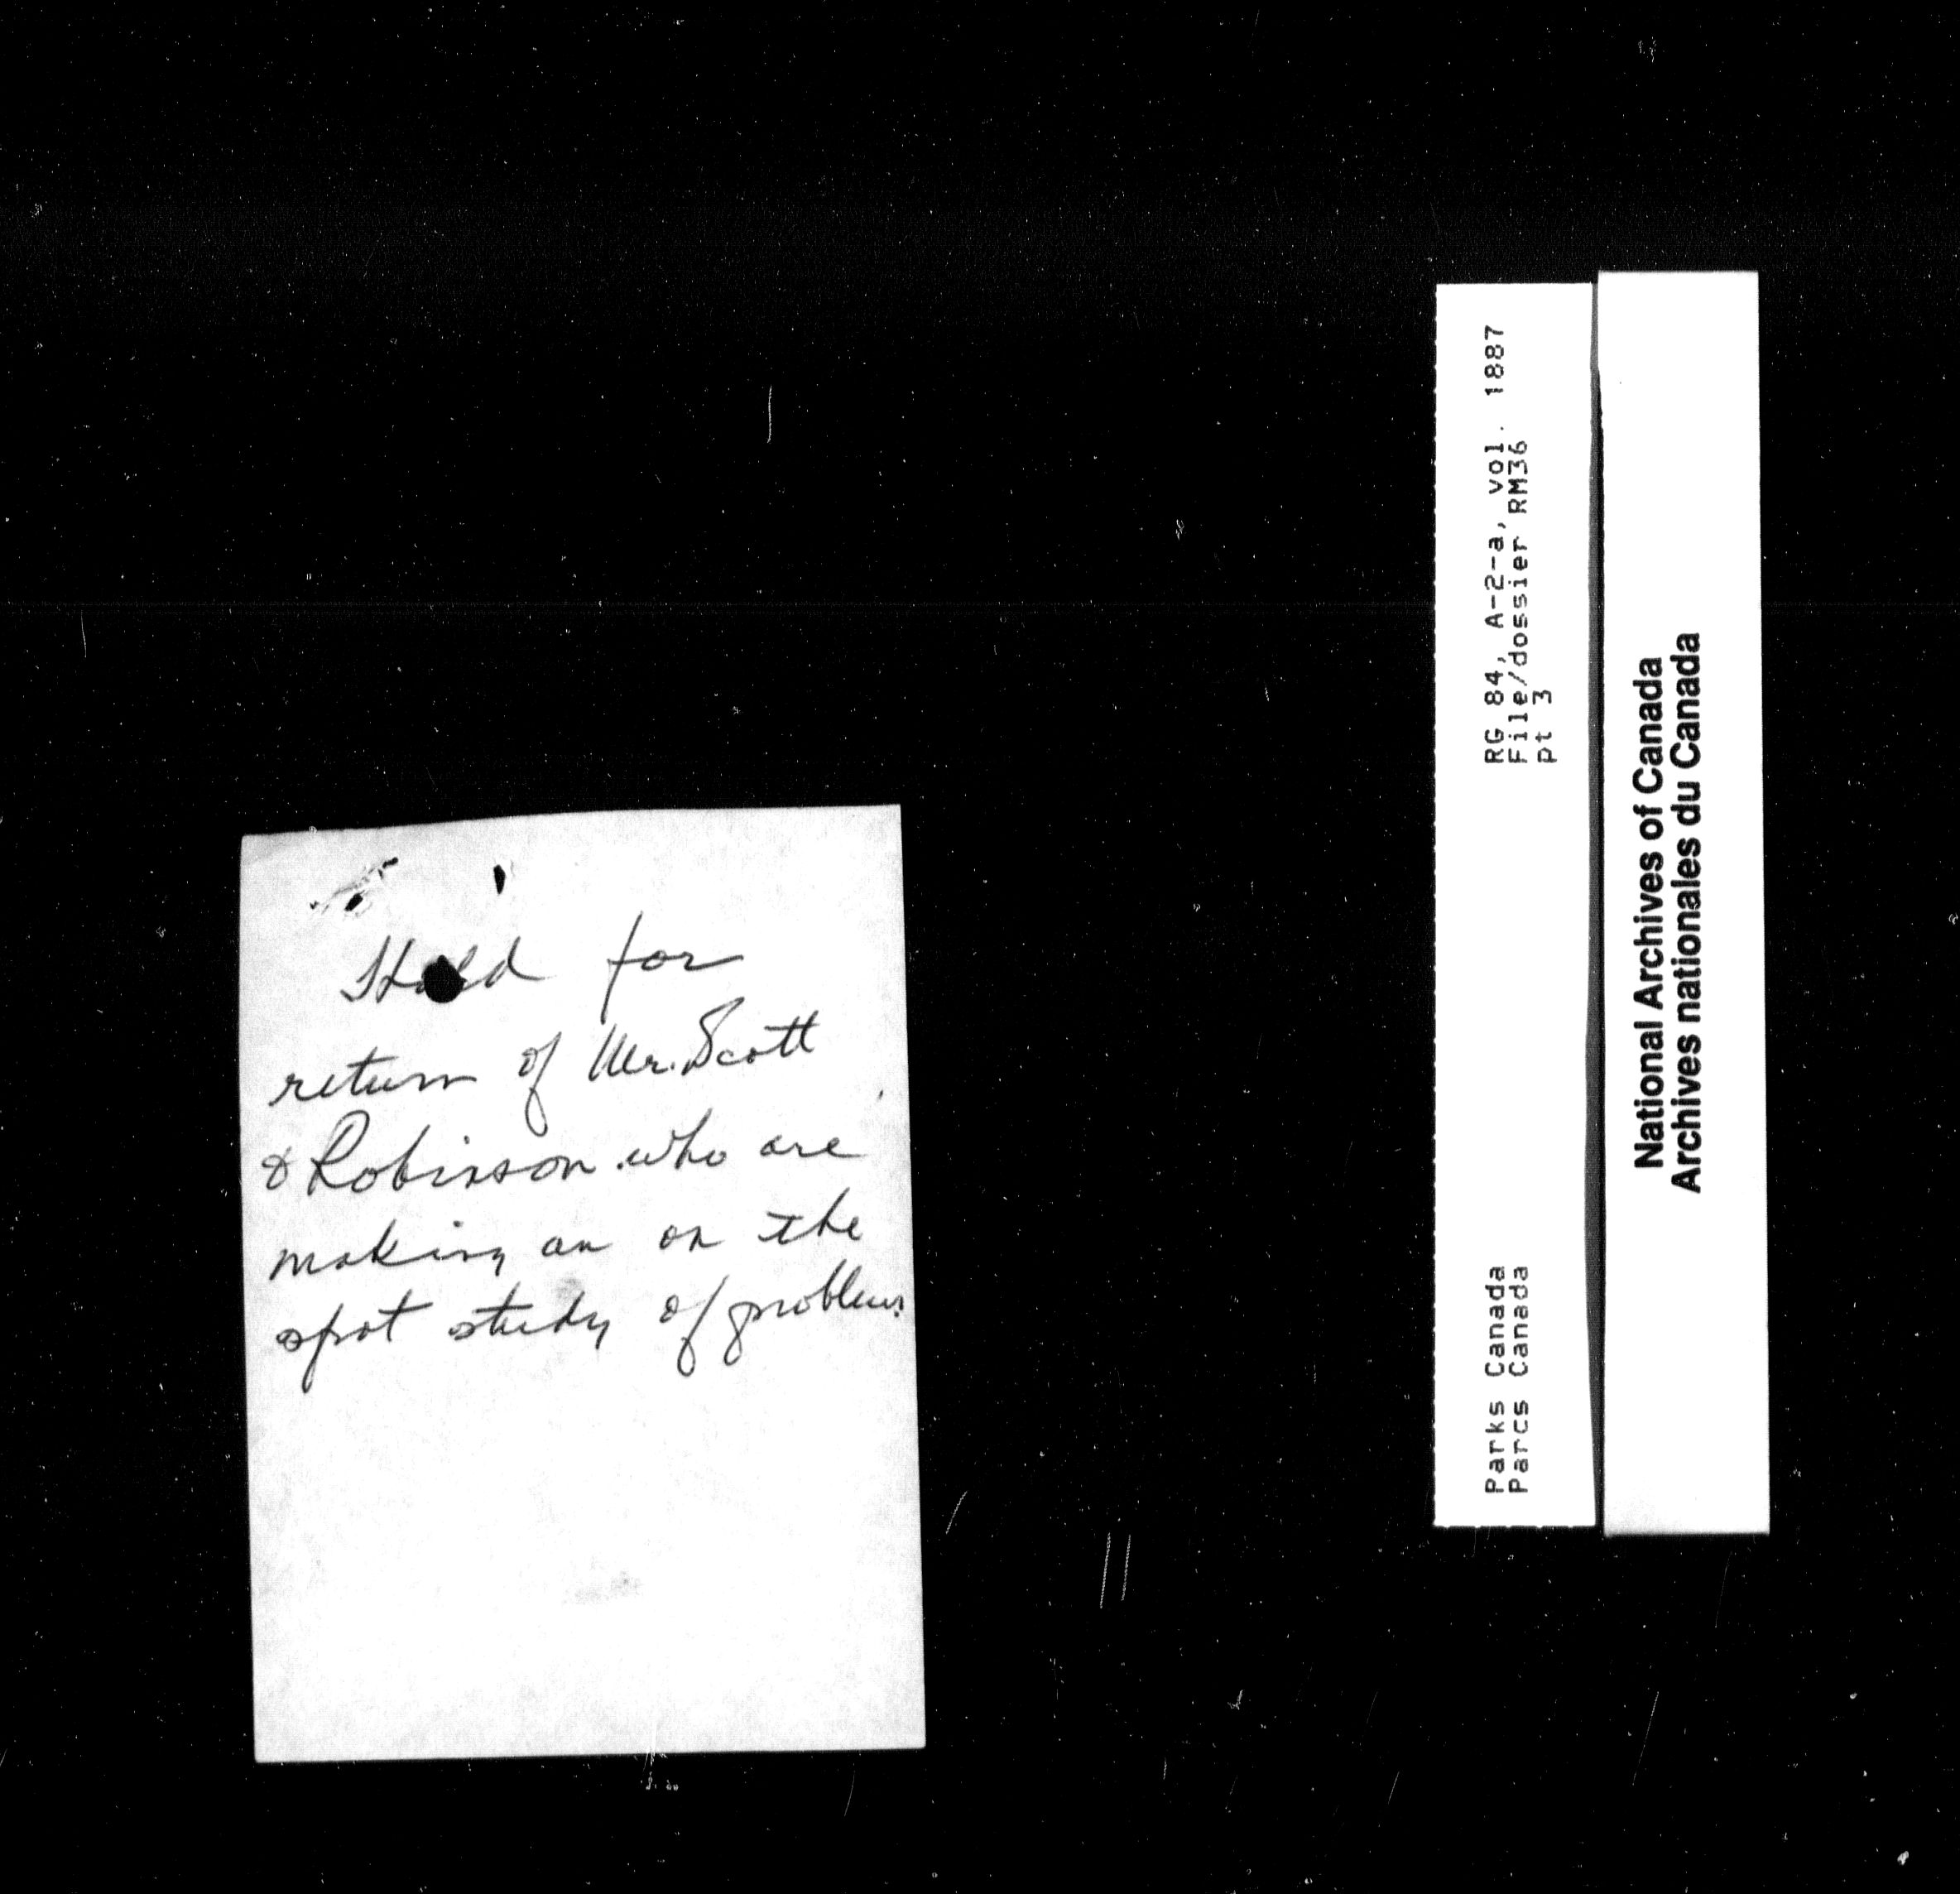 Hold for
return of Mr. Scott
& Robinson who are
making an on the
spot study of problems
Parks Canada
Parcs Canada
RG 84, A-2-a, vol. 1887
File/dossier RM36
pt 3
National Archives of Canada
Archives nationales du Canada